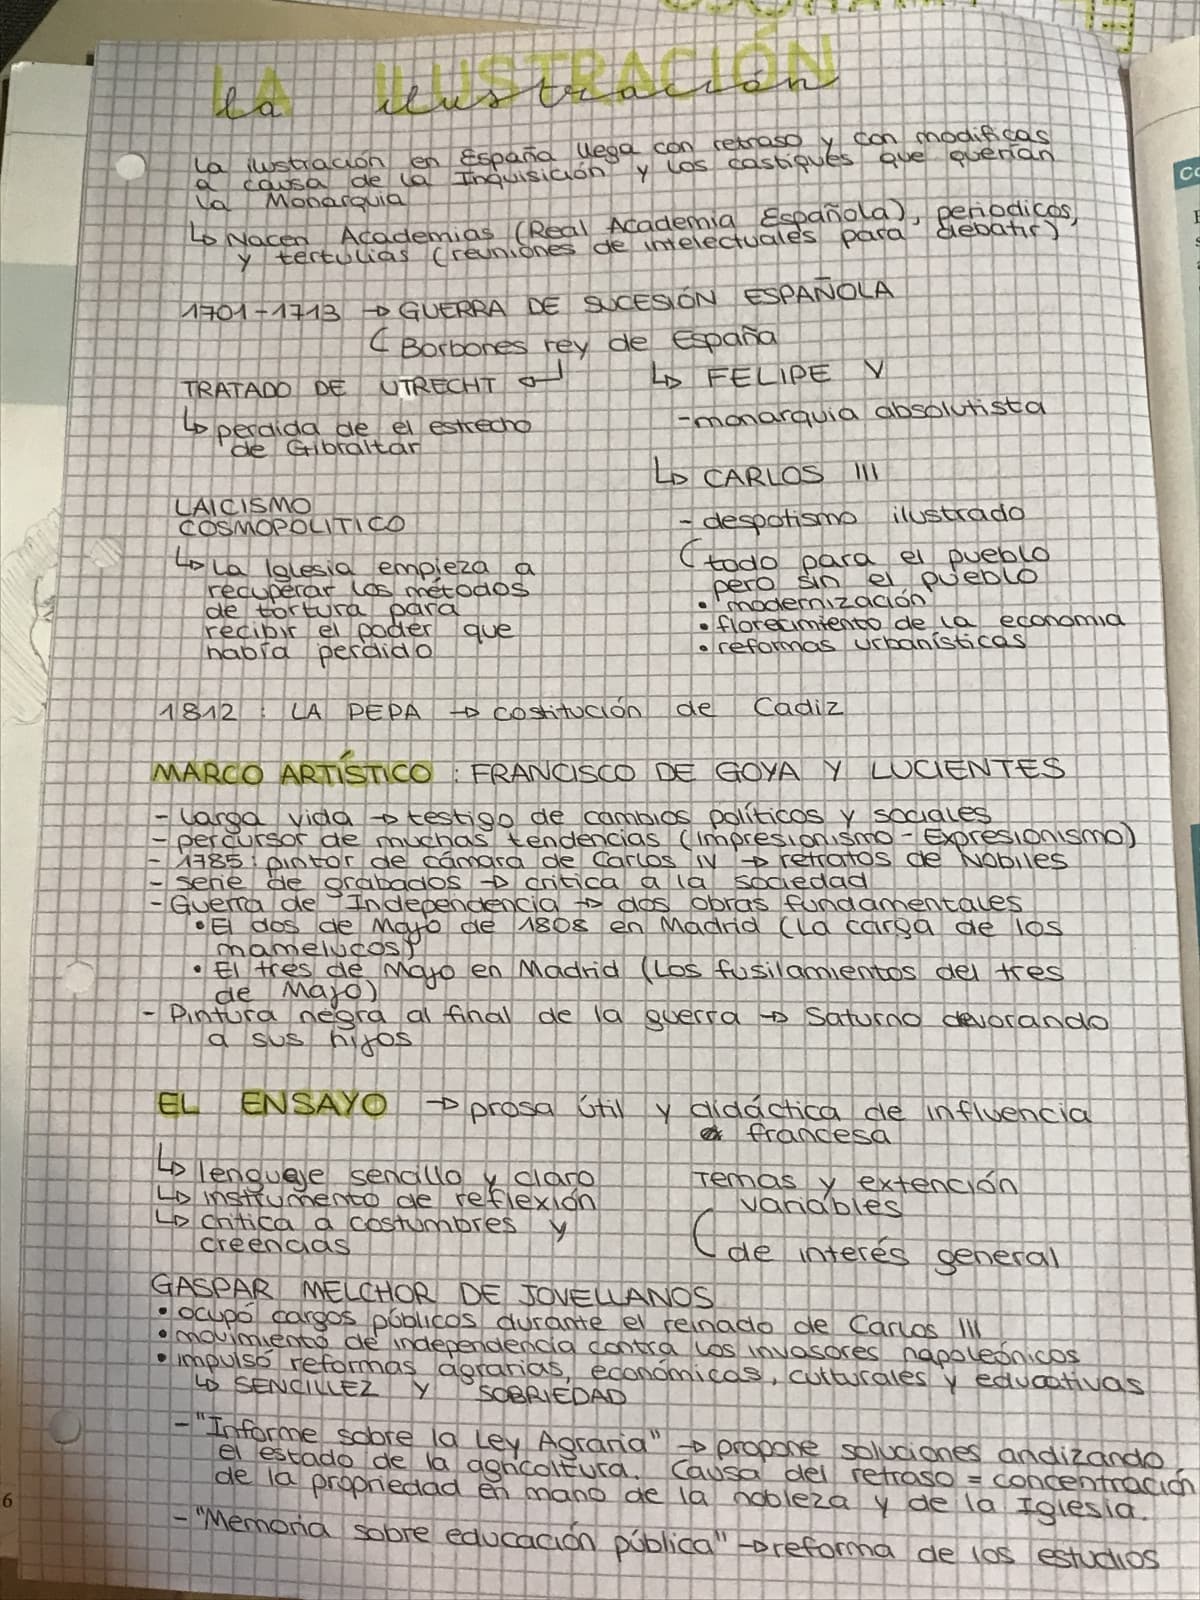 LA ILUSTRACIÓN
la ilustración
La ilustración en España llega con retraso y con modificas
a causa de la Inquisición y los castiques que querían
la Monarquia
↳ Nacen Academias (Real Academia Española), periodicos,
y tertulias (reuniones de intelectuales para debatir)
1701-1713 → GUERRA DE SUCESIÓN ESPAÑOLA
( Borbones rey de España
TRATADO DE UTRECHT ↲
↳ perdida de el estrecho
de Gibraltar
↳ FELIPE V
- monarquia absolutista
↳ CARLOS III
- despotismo ilustrado
( todo para el pueblo
pero sin el pueblo
• modernización
• florecimiento de la economia
• reformas urbanísticas
LAICISMO
COSMOPOLITICO
↳ La Iglesia empieza a
recuperar los métodos
de tortura para
recibir el poder que
había perdido
1812 : LA PEPA → costitución de Cadiz
MARCO ARTÍSTICO : FRANCISCO DE GOYA Y LUCIENTES
- larga vida → testigo de cambios políticos y sociales
- percursor de muchas tendencias (impresionismo - Expresionismo)
- 1785 : pintor de cámara de Carlos IV → retratos de Nobiles
- serie de grabados → critica a la sociedad
- Guerra de Independencia → dos obras fundamentales
• El dos de Mayo de 1808 en Madrid (La carga de los
mamelucos)
• El tres de Mayo en Madrid (Los fusilamientos del tres
de Mayo)
- Pintura negra al final de la guerra → Saturno devorando
a sus hijos
EL ENSAYO → prosa útil y didáctica de influencia
francesa
↳ lenguaje sencillo y claro
↳ instrumento de reflexión
↳ critica a costumbres y
creencias
Temas y extención
variables
( de interés general
GASPAR MELCHOR DE JOVELLANOS
• ocupó cargos públicos durante el reinado de Carlos III
• movimiento de independencia contra los invasores napoleónicos
• impulsó reformas agrarias, económicas, culturales y educativas
↳ SENCILLEZ Y SOBRIEDAD
- "Informe sobre la Ley Agraria" → propone soluciones andizando
el estado de la agricoltura. Causa del retraso = concentración
de la propriedad en mano de la nobleza y de la Iglesia.
- "Memoria sobre educación pública" → reforma de los estudios
6